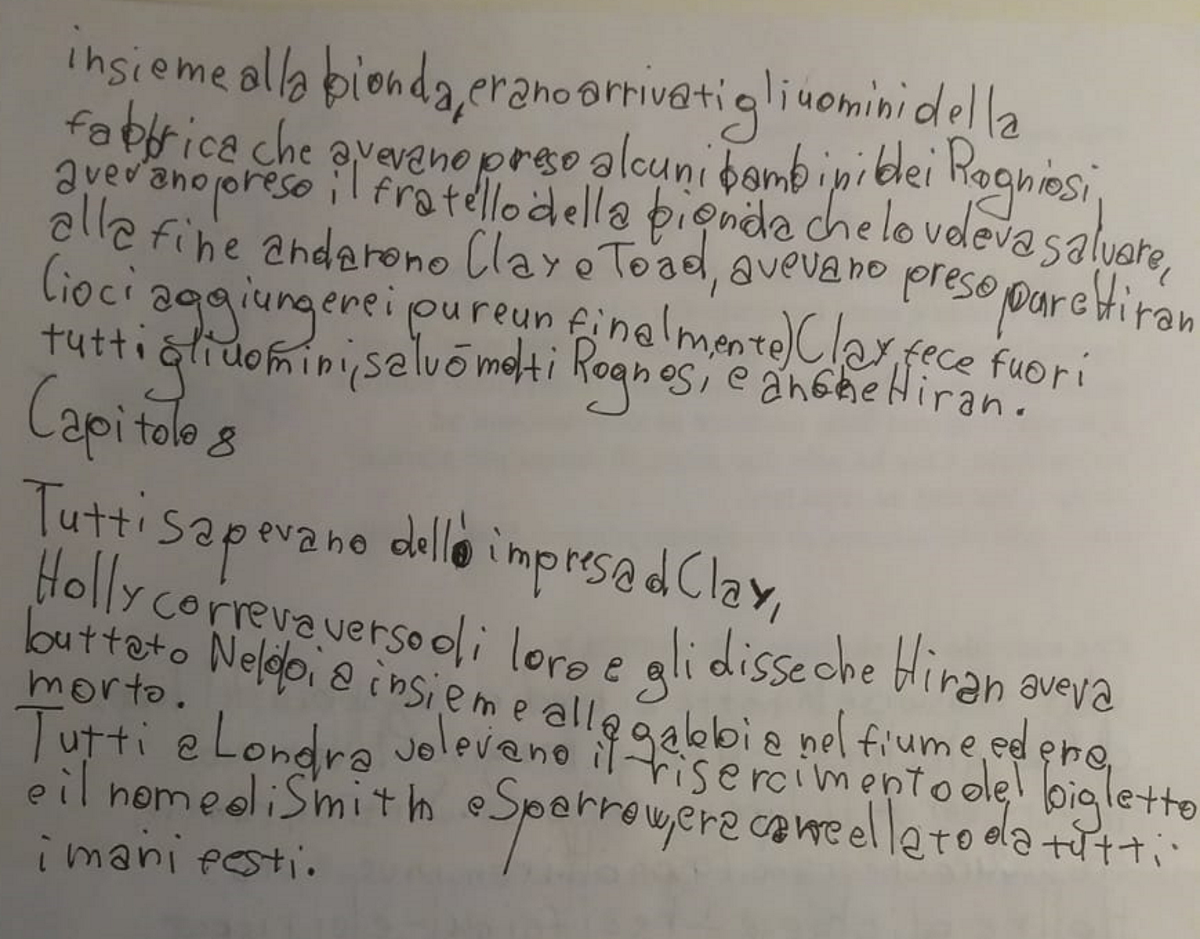 insieme alla bionda, erano arrivati gli uomini della
fabbrica che avevano preso alcuni bambini dei Rogniosi,
avevano preso il fratello della bionda che lo voleva salvare,
alla fine andarono Clay e Toad, avevano preso pure Hiran
(io ci aggiungerei pure un finalmente) Clay fece fuori
tutti gli uomini, salvō molti Rognosi e anche Hiran.
Capitolo 8
Tutti sapevano dell'impresa d Clay,
Holly correva verso di loro e gli disse che Hiran aveva
buttato Neldoia insieme alla gabbia nel fiume ed era
morto.
Tutti a Londra volevano il risercimento del bigletto
e il nome di Smith e Sparrow, era cancellato da tutti
i mani festi.